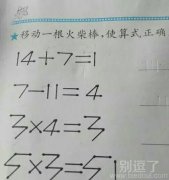 ★移动一根火柴棒,使算式正确
14+7=1
7-11=4
3×4=3
5×3=51
别逗了
biedoul.com